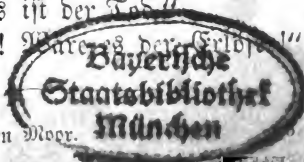 s ist der Tod."
! Wäre es der Erlöser!"
Bayerische
Staatsbibliothek
München
n Moor.